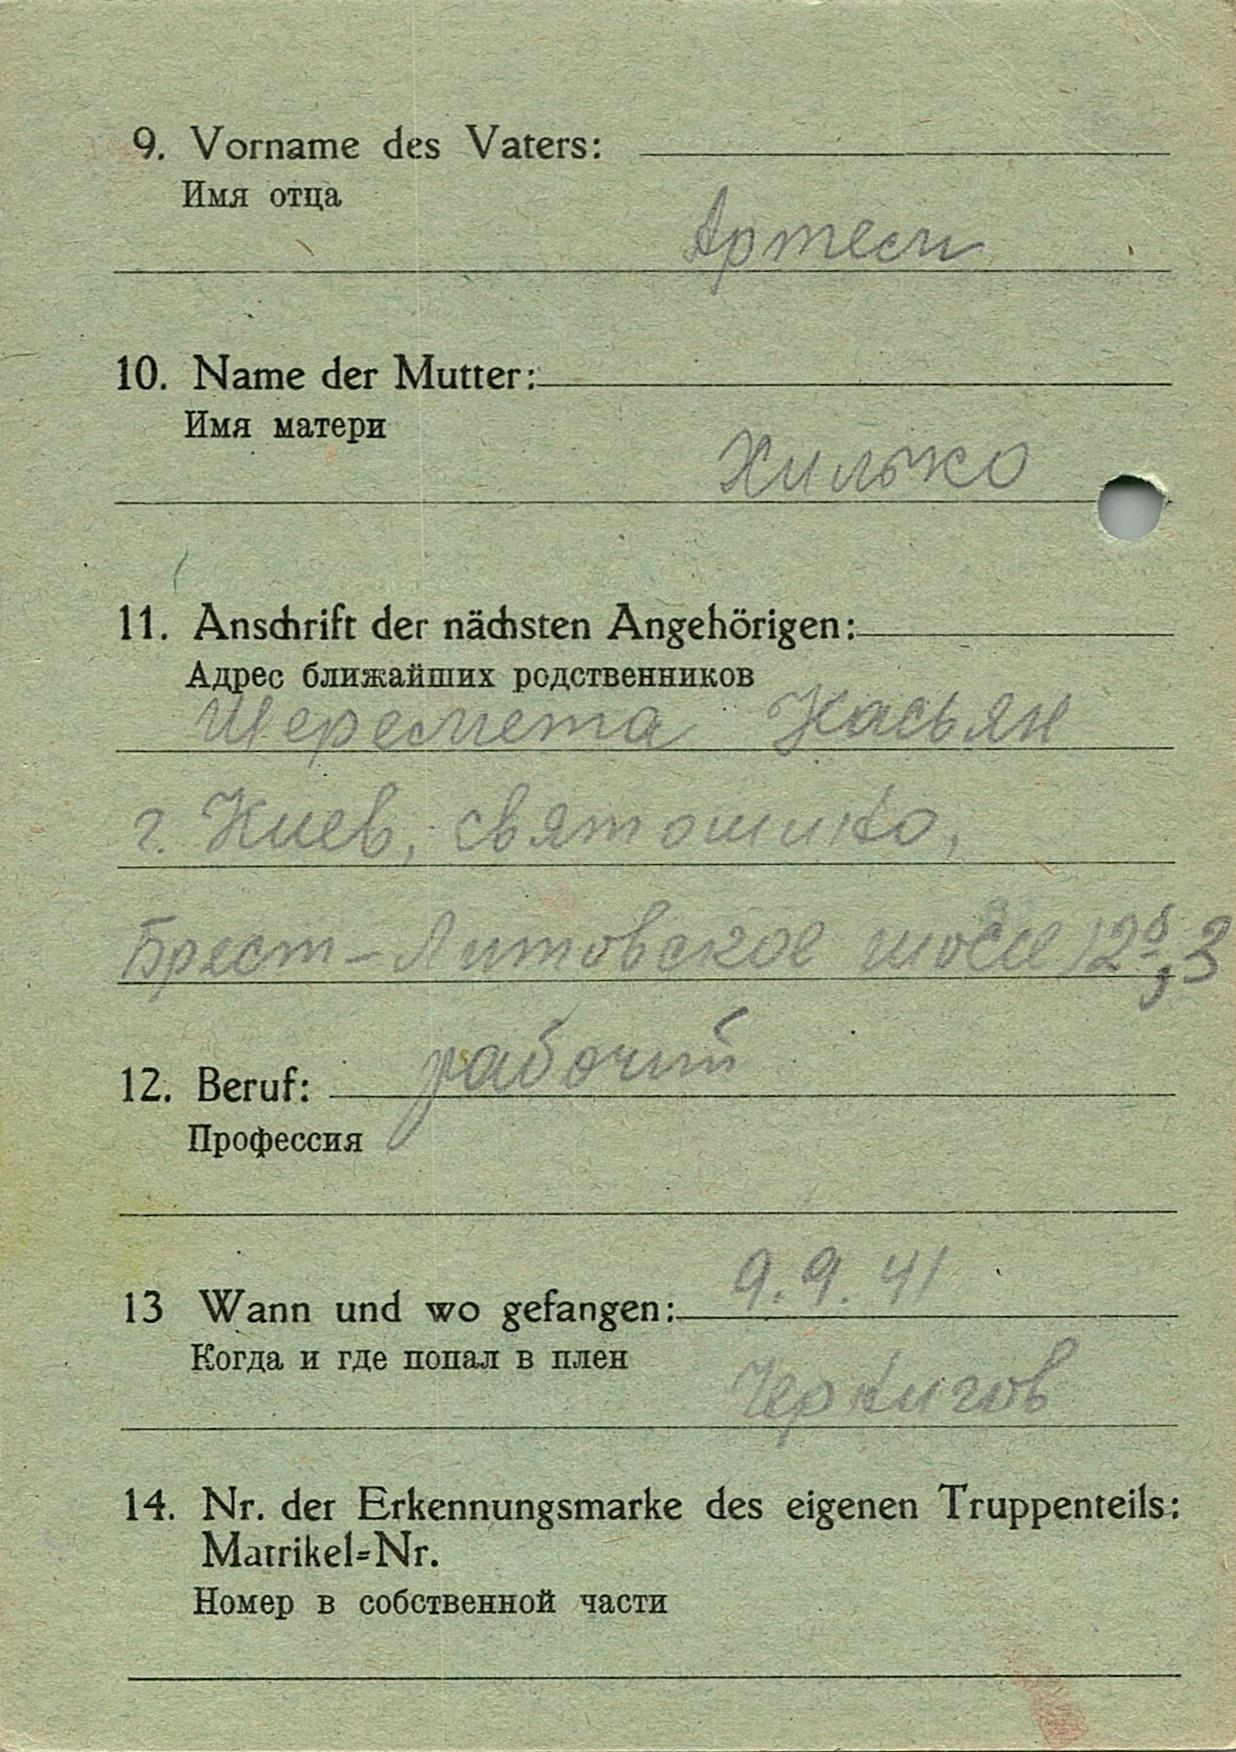 9. Vorname des Vaters:
Имя отца
Артем
10. Name der Mutter:
Имя матери
Хилько
11. Anschrift der nächsten Angehörigen:
Адрес ближайших родственников
Шеремета Касьян
г. Киев, святошино,
Брест-Литовское шоссе
12. Beruf: рабочий
Профессия
13 Wann und wo gefangen: 9.9.41
Когда и где попал в плен
Чернигов
14. Nr. der Erkennungsmarke des eigenen Truppenteils:
Matrikel=Nr.
Номер в собственной части